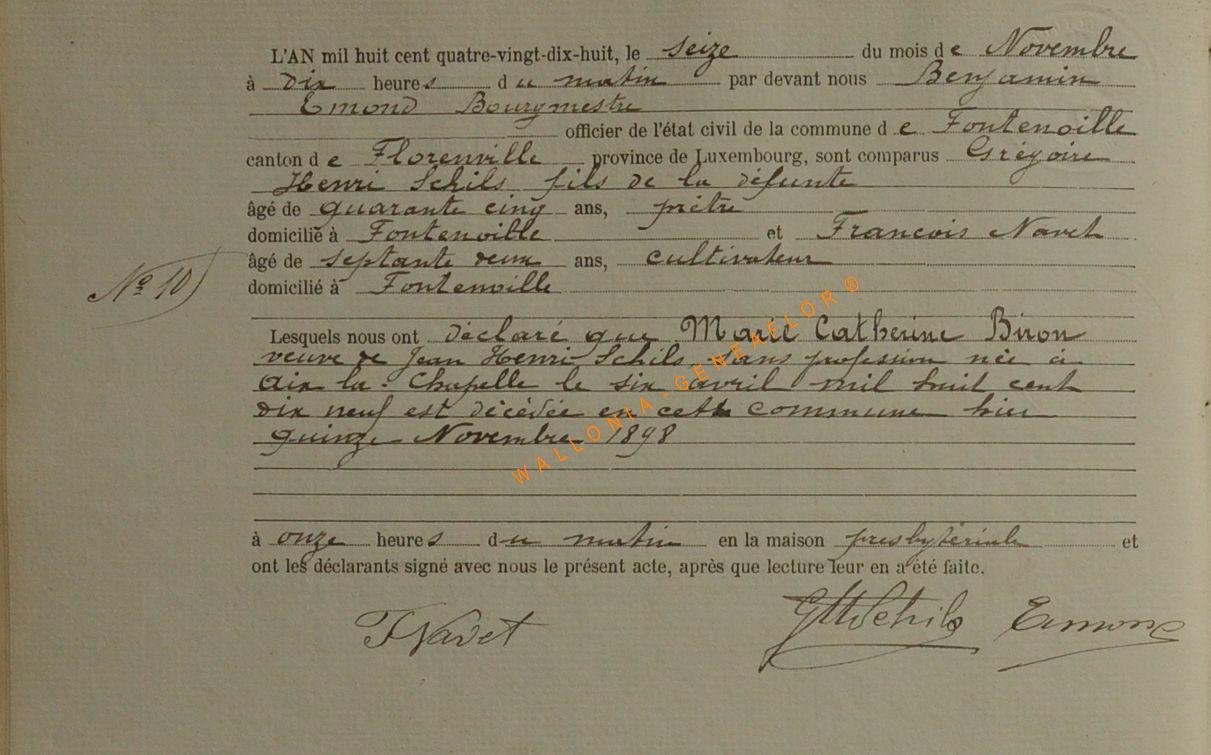 L'AN mil huit cent quatre-vingt-dix-huit, le seize du mois de Novembre
à dix heures du matin par devant nous Benjamin
Emond Bourgmestre
officier de l'état civil de la commune de Fontenoille
canton de Florenville province de Luxembourg, sont comparus Grégoire
Henri Schils fils de la défunte
âgé de quarante cinq ans, prêtre
domicilié à Fontenoille et Francois Navet
âgé de septante deux ans, cultivateur
N° 10
domicilié à Fontenoille
Lesquels nous ont déclaré que Marie Catherine Biron
veuve de Jean Henri Schils, sans profession née à
Aix la Chapelle le six avril mil huit cent
dix neuf est décédée en cette commune hier
quinze Novembre 1898
à onze heures du matin en la maison presbytériale et
ont les déclarants signé avec nous le présent acte, après que lecture leur en a été faite.
F Navet GH Schils Emond
WALLONIA-GENEAFLOR®